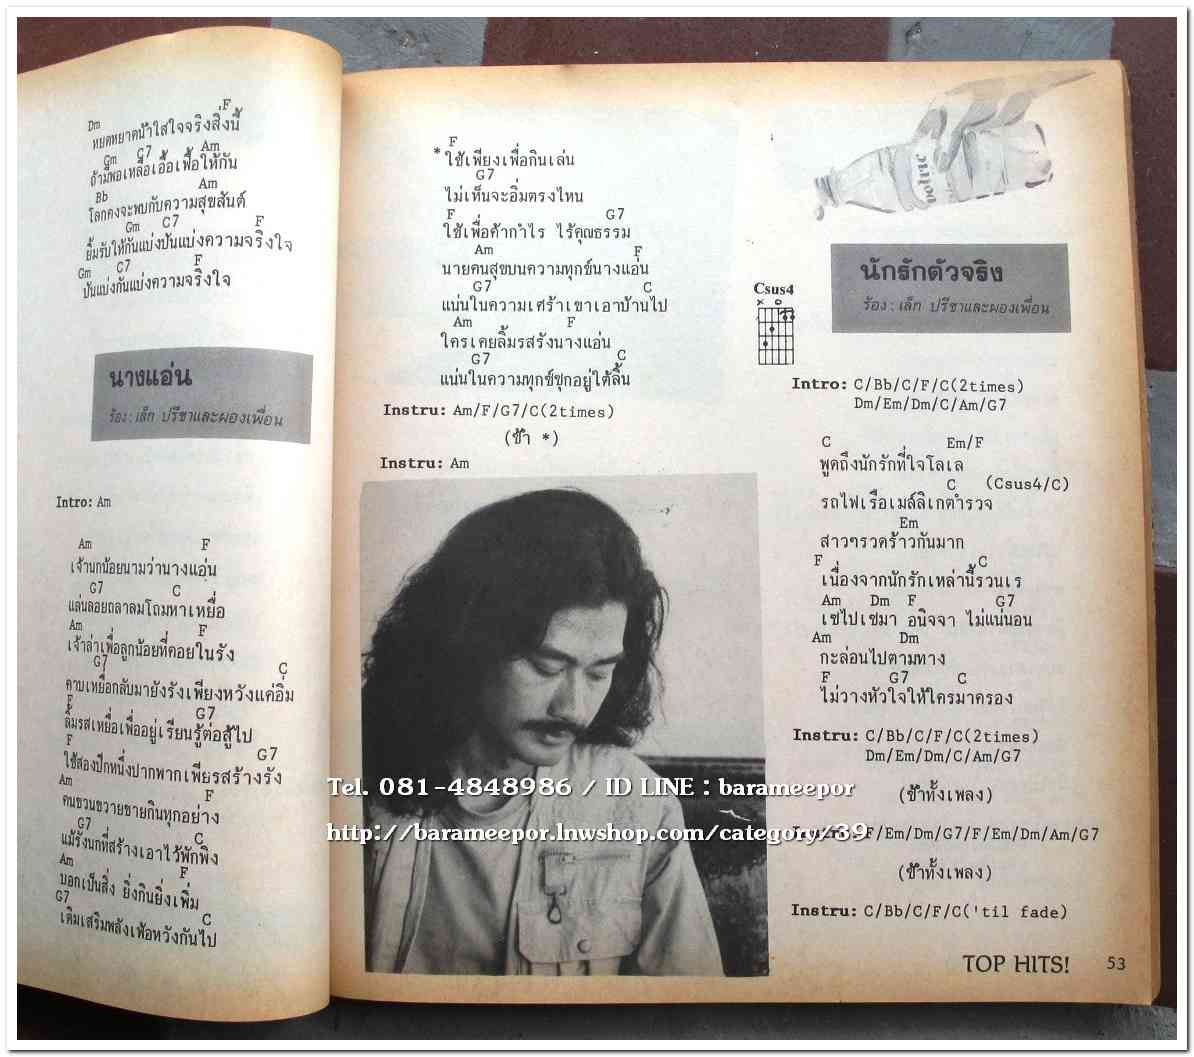 Dm F
หยดหยาดน้ำใสใจจริงสิ่งนี้
Gm C7 Am
ถ้ามีพอเหลือเอื้อเฟื้อให้กัน
Bb Am
โลกคงจะพบกับความสุขสันต์
Gm C7 F
ยิ้มรับให้กันแบ่งปันแบ่งความจริงใจ
Gm C7 F
ปันแบ่งกันแบ่งความจริงใจ
นางแอ่น
ร้อง : เล็ก ปรีชาและผองเพื่อน
Intro: Am
Am F
เจ้านกน้อยนามว่านางแอ่น
G7 C
แล่นลอยถลาลมโถมหาเหยื่อ
Am F
เจ้าล่าเพื่อลูกน้อยที่คอยในรัง
G7 C
คาบเหยื่อกลับมายังรังเพียงหวังแค่อิ่ม
F G7
ลิ้มรสเหยื่อเพื่ออยู่เรียนรู้ต่อสู้ไป
F G7
ใช้สองปีกหนึ่งปากพากเพียรสร้างรัง
Am F
คนขวนขวายขายกินทุกอย่าง
G7 C
แม้รังนกที่สร้างเอาไว้พักพิง
Am F
บอกเป็นสิ่ง ยิ่งกินยิ่งเพิ่ม
G7 C
เติมเสริมพลังเพ้อหวังกันไป
F
* ใช้เพียงเพื่อกินเล่น
G7
ไม่เห็นจะอิ่มตรงไหน
F G7
ใช้เพื่อค้ากำไร ไร้คุณธรรม
Am F
นายคนสุขบนความทุกข์นางแอ่น
G7 C
แน่นในความเศร้าเขาเอาบ้านไป
Am F
ใครเคยลิ้มรสรังนางแอ่น
G7 C
แน่นในความทุกข์ซุกอยู่ใต้ลิ้น
Instru: Am/F/G7/C(2times)
(ซ้ำ *)
Instru: Am
นักรักตัวจริง
ร้อง : เล็ก ปรีชาและผองเพื่อน
Csus4
x o
Intro: C/Bb/C/F/C(2times)
Dm/Em/Dm/C/Am/G7
C Em/F
พูดถึงนักรักที่ใจโลเล
C (Csus4/C)
รถไฟเรือเมล์ลิเกตำรวจ
Em
สาวๆรวดร้าวกันมาก
F C
เนื่องจากนักรักเหล่านี้รวนเร
Am Dm F G7
เซไปเซมา อนิจจา ไม่แน่นอน
Am Dm
กะล่อนไปตามทาง
F G7 C
ไม่วางหัวใจให้ใครมาครอง
Instru: C/Bb/C/F/C(2times)
Dm/Em/Dm/C/Am/G7
(ซ้ำทั้งเพลง)
Instru: F/Em/Dm/G7/F/Em/Dm/Am/G7
(ซ้ำทั้งเพลง)
Instru: C/Bb/C/F/C('til fade)
TOP HITS! 53
Tel. 081-4848986 / ID LINE : barameepor
http://barameepor.lnwshop.com/category/39